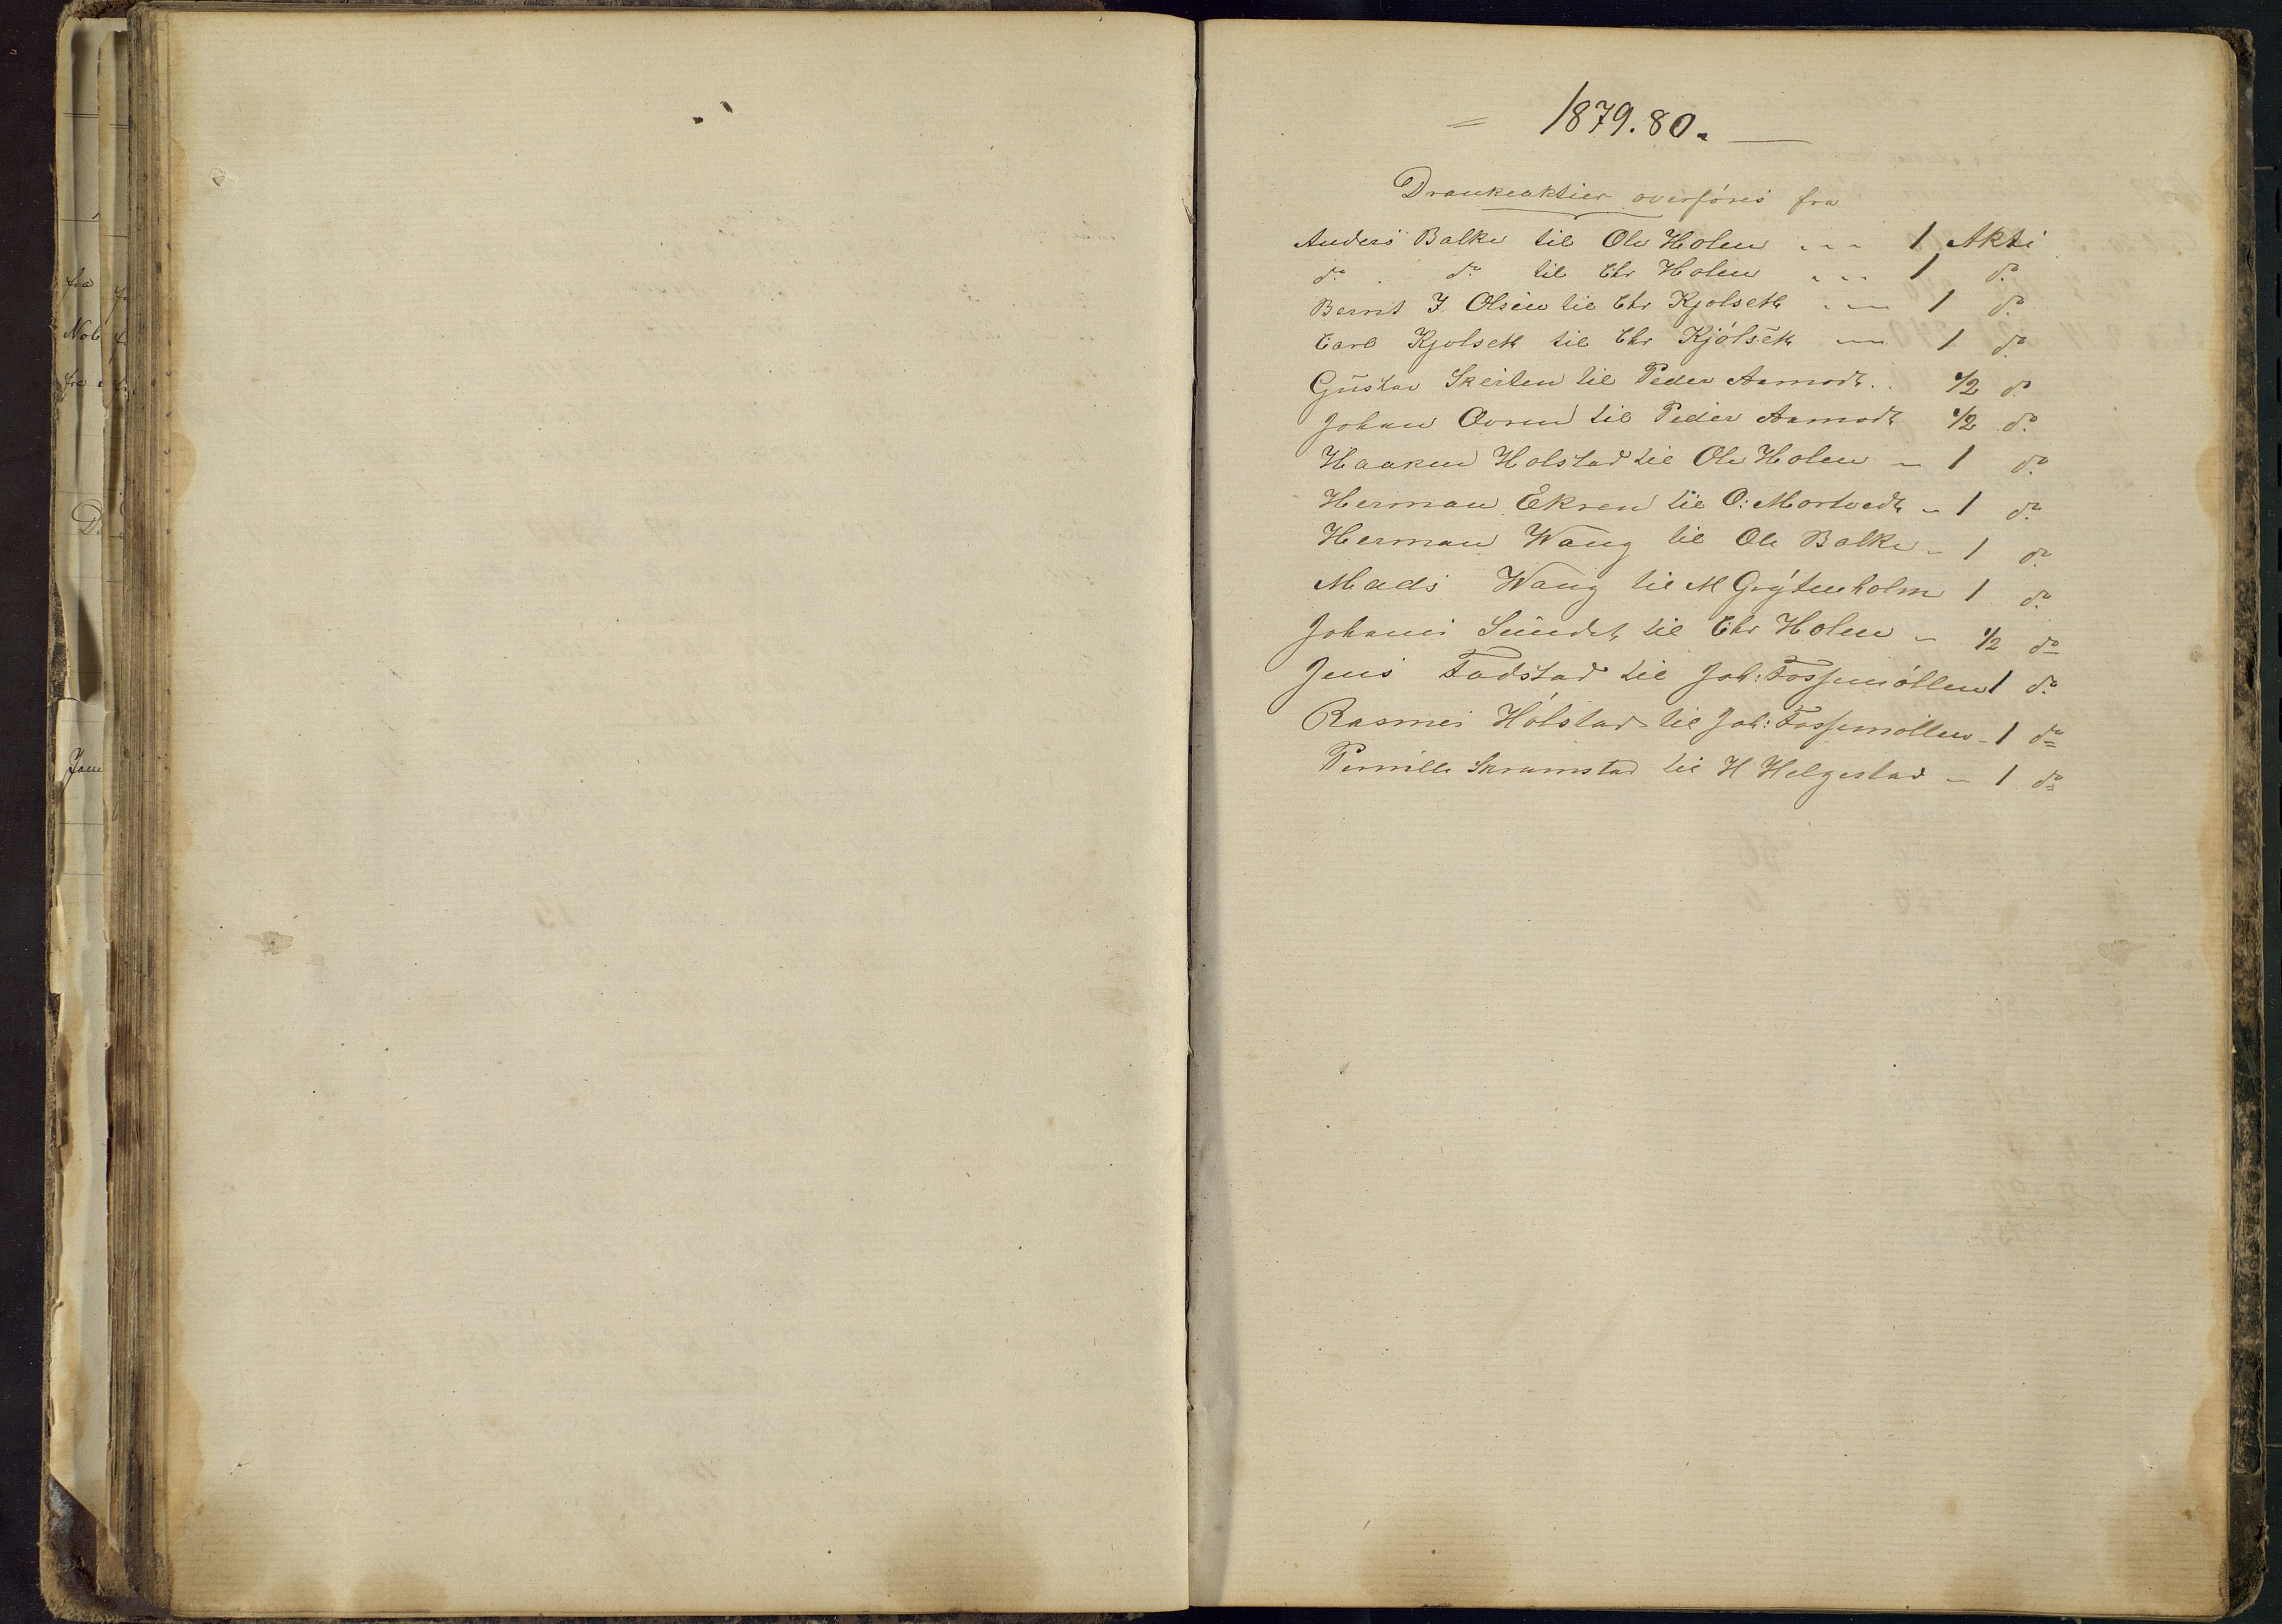 1879.80.
Drankeaktier overføres fra
Anders Balke til Ole Holen 1 Aktie
do do til Chr Holen 1 do
Bernt J. Olsen til Chr Kjølseth 1 do
Carl Kjølseth til Chr Kjølseth 1 do
Gustav Skeiten til Peder Aamodt 1/2 do
Johan Ovren til Peder Aamodt 1/2 do
Haaken Holstad til Ole Holen 1 do
Herman Ekren til O: Mortvedt 1 do
Herman Wang til Ole Balke 1 do
Mads Wang til M Grytenholm 1 do
Johanes Sundet til Chr Holen 1/2 do
Jens Fodstad til Joh: Fossemøllen 1 do
Rasmus Hólstad til Joh: Fossemøllen 1 do
Pernille Skramstad til H Helgestad 1 do
fra
Nob
fra